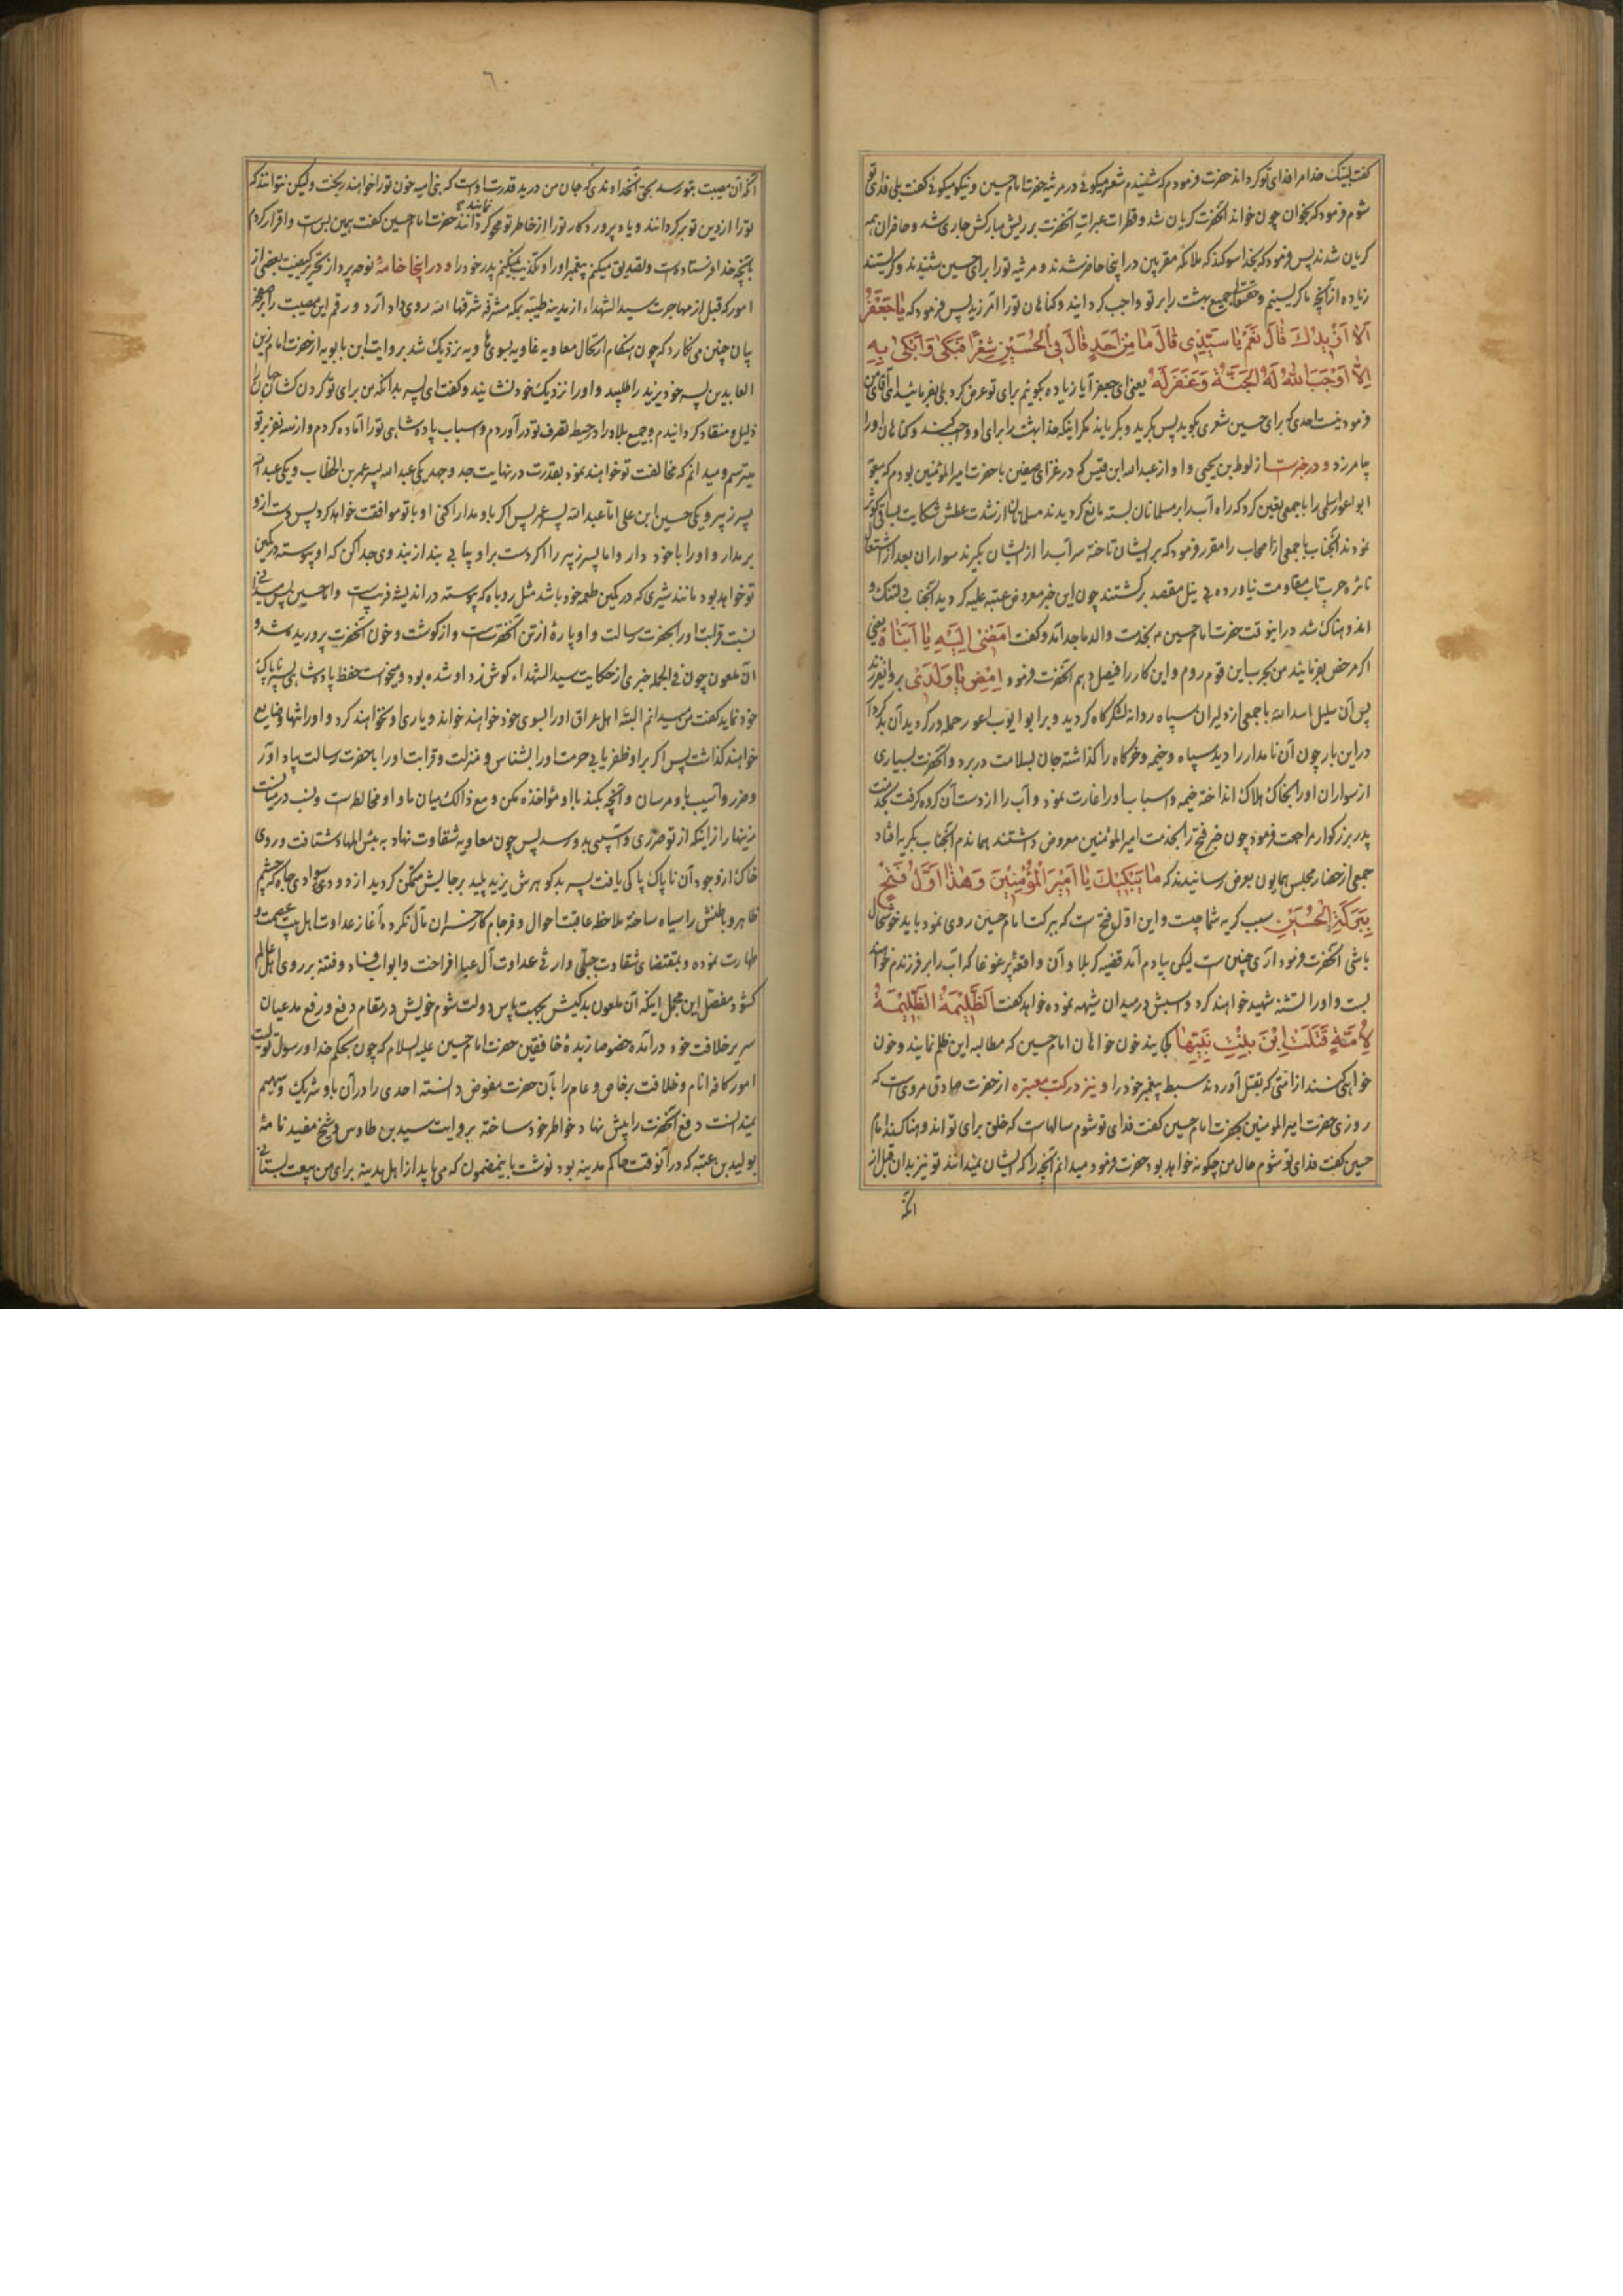 گفت لبیک خدا مرا فدای تو گرداند حضرت فرمود که شنیدم شعر میگوئی در مرثیه حضرت امام حسین و نیکو میگوئی گفت بلی فدای تو
شوم فرمود که بخوان چون خواند آنحضرت گریان شد و قطرات عبرات آنحضرت بر ریش مبارکش جاری شد و حاضران همه
گریان شدند پس فرمود که بخدا سوگند که ملائکه مقربین در اینجا حاضر شدند و مرثیه تو را برای حسین شنیدند و گریستند
زیاده از آنچه ما گریستیم و حقتعالی جمیع بهشت را بر تو واجب گردانید و گناهان تو را آمرزید پس فرمود که یا جعفر
الا ازیدک قال نعم یا سیدی قال ما من احد قال فی الحسین شعرا فبکی وابکی به
الا اوجب الله له الجنة وغفر له یعنی ای جعفر آیا زیاده بگویم برای تو عرض کرد بلی بفرمائید ای آقای من
فرمود نیست احدی که برای حسین شعری بگوید پس بگرید و بگریاند مگر اینکه خدا بهشت را برای او واجب کند و گناهان او را
بیامرزد و در خبرست از لوط بن یحیی و او از عبد الله ابن قیس که در غزای صفین با حضرت امیر المؤمنین بودم که معویه
ابو اعور اسلمی را با جمعی تعیین کرد که راه آب را بر مسلمانان بسته مانع گردیدند مسلمانان از شدت عطش شکایت بساقی کوثر
نمودند آنجناب با جمعی از اصحاب را مقرر فرمود که بر ایشان تاخته سر آب را از ایشان بگیرند سواران بعد از اشتعال
نائره حرب تاب مقاومت نیاورده بی نیل مقصد برگشتند چون این خبر معروض عتبه علیه گردید آنجناب دلتنگ و
اندوهناک شد در اینوقت حضرت امام حسین بخدمت والد ماجد آمد و گفت امضی الیه یا ابتاه یعنی
اگر مرخص بفرمایند من بحرب این قوم روم و این کار را فیصل دهم آنحضرت فرمود امض یا ولدی برو ایفرزند
پس آن سلیل اسد الله با جمعی از دلیران سپاه روانه لشکرگاه گردید و بر ابو ایوب اعور حمله ور گردید آن بدکردار
در این بار چون آن نامدار را دید سپاه و خیمه و خرگاه را گذاشته جان بسلامت در برد و آنحضرت بسیاری
از سواران او را بخاک هلاک انداخته خیمه و اسباب او را غارت نمود و آب را از دست آن گروه گرفت بخدمت
پدر بزرگوار مراجعت فرمود چون خبر فتح را بخدمت امیر المؤمنین معروض داشتند هماندم آنجناب بگریه افتاد
جمعی از حضار مجلس همایون بعرض رسانیدند که ما یبکیک یا امیر المؤمنین وهذا اول فتح
ببرکة الحسین سبب گریه شما چیست و این اول فتح ست که ببرکت امام حسین روی نمود باید خوشحال
باشی آنحضرت فرمود آری چنین ست لیکن بیادم آمد قضیه کربلا و آن واقعه پر غوغا که آب را بر فرزندم خواهند
بست و او را تشنه شهید خواهند کرد و اسبش در میدان شیهه نموده خواهد گفت الظلیمة الظلیمة
لامة قتلت ابن بنت نبیها کجایند خون خواهان امام حسین که مطالبه این ظلم نمایند و خون
خواهی کنند از امتی که بقتل آوردند سبط پیغمبر خود را و نیز در کتب معتبره از حضرت صادق مرویست که
روزی حضرت امیر المومنین بحضرت امام حسین گفت فدای تو شوم سالهاست که خلق برای تو اندوهناکند امام
حسین گفت فدای تو شوم حال من چگونه خواهد بود حضرت فرمود میدانم آنچه را که ایشان نمیدانند تو نیز بدان قبل از
آنکه
٦٠
آنکه آن مصیبت بتو رسد بحق آنخداوندی که جان من در ید قدرت اوست که بنی امیه خون تو را خواهند ریخت ولیکن نتوانند که
تو را از دین تو برگردانند و یاد پروردگار تو را از خاطر تو محو گردانند حضرت امام حسین گفت همین بس ست و اقرار کردم
نمایند
بآنچه خدا فرستاده است و تصدیق میکنم پیغمبر او را و تکذیب نمیکنم پدر خود را و در اینجا خامه نوحه پرداز بتحریر کیفیت بعضی از
امور که قبل از مهاجرت سید الشهداء از مدینه طیبه بمکه مشرفه شرفها الله روی داد آرد و رقم این مصیبت را
بیان چنین می نگارد که چون هنگام ارتحال معاویه غاویه بسوی هاویه نزدیک شد بروایت ابن بابویه از حضرت امام زین
العابدین پسر خود یزید را طلبید و او را نزدیک خود نشانید و گفت ای پسر بدانکه من برای تو گردن کشان جهان را
ذلیل و منقاد گردانیدم و جمیع بلاد را در حیطه تصرف تو در آوردم و اسباب پادشاهی تو را آماده کردم و از سه نفر بر تو
میترسم و میدانم که مخالفت تو خواهند نمود بقدرت در نهایت جد و جهد یکی عبد الله پسر عمر بن الخطاب و یکی عبد الله
پسر زبیر و یکی حسین ابن علی اما عبد الله پسر عمر پس اگر با او مدارا کنی او با تو موافقت خواهد کرد پس دست از او
بر مدار و او را با خود دار و اما پسر زبیر را اگر دست بر او بیابی بند از بند وی جدا کن که او پیوسته در کمین
تو خواهد بود مانند شیری که در کمین طعمه خود باشد مثل روباه که پیوسته در اندیشه فریب ست و اما حسین پس
نسبت قرابت او را بحضرت رسالت و او پاره از تن آنحضرت ست و از گوشت و خون آنحضرت پرورید شده و
آن ملعون چون فی الجمله خبری از حکایت سید الشهداء گوش زد او شده بود و میخواست حفظ پادشاهی پسر ناپاک
خود نماید گفت من میدانم البته اهل عراق او را بسوی خود خواهند خواند و یاری او نخواهند کرد و او را تنها و ضایع
خواهند گذاشت پس اگر بر او ظفر یابی حرمت او را بشناس و منزلت و قرابت او را با حضرت رسالت بیاد آور
و ضرر و آسیب باو مرسان و آنچه بکند با او مؤاخذه مکن و مع ذالک میان ما و او مخالطه است و نسب در میانست
زینهار از اینکه از تو ضرری و آسیبی بدو رسد پس چون معاویه شقاوت نهاد به بئس المهاد شتافت و روی
خاک از وجود آن ناپاک پاکی یافت پسر بدگوهرش یزید پلید بر جایش متمکن گردید از دود سوادی جاه که چشم
ظاهر و باطنش را سیاه ساخته ملاحظه عاقبت احوال و فرجام کار خسران مآل نکرده آغاز عداوت اهل بیت عصمت و
طهارت نموده و بمقتضای شقاوت جبلی وارثی عداوت آل عبا افراخت و ابواب فساد و فتنه بر روی اهل عالم
گشود مفصل این مجمل اینکه آن ملعون بدکیش بجهت پاس دولت شوم خویش در مقام دفع و رفع مدعیان
سریر خلافت خود در آمده خصوصا زبده خافقین حضرت امام حسین علیه السلام که چون بحکم خدا و رسول تولیت
امور کافه انام و خلافت بر خاص و عام را بآن حضرت مفوض دانسته احدی را در آن باو شریک و سهیم
نمیدانست دفع آنحضرت را پیش نهاد خواطر خود ساخته بروایت سید بن طاوس و شیخ مفید نامهٔ
بولید بن عتبه که در آنوقت حاکم مدینه بود نوشت باینمضمون که می باید از اهل مدینه برای من بیعت بستانی